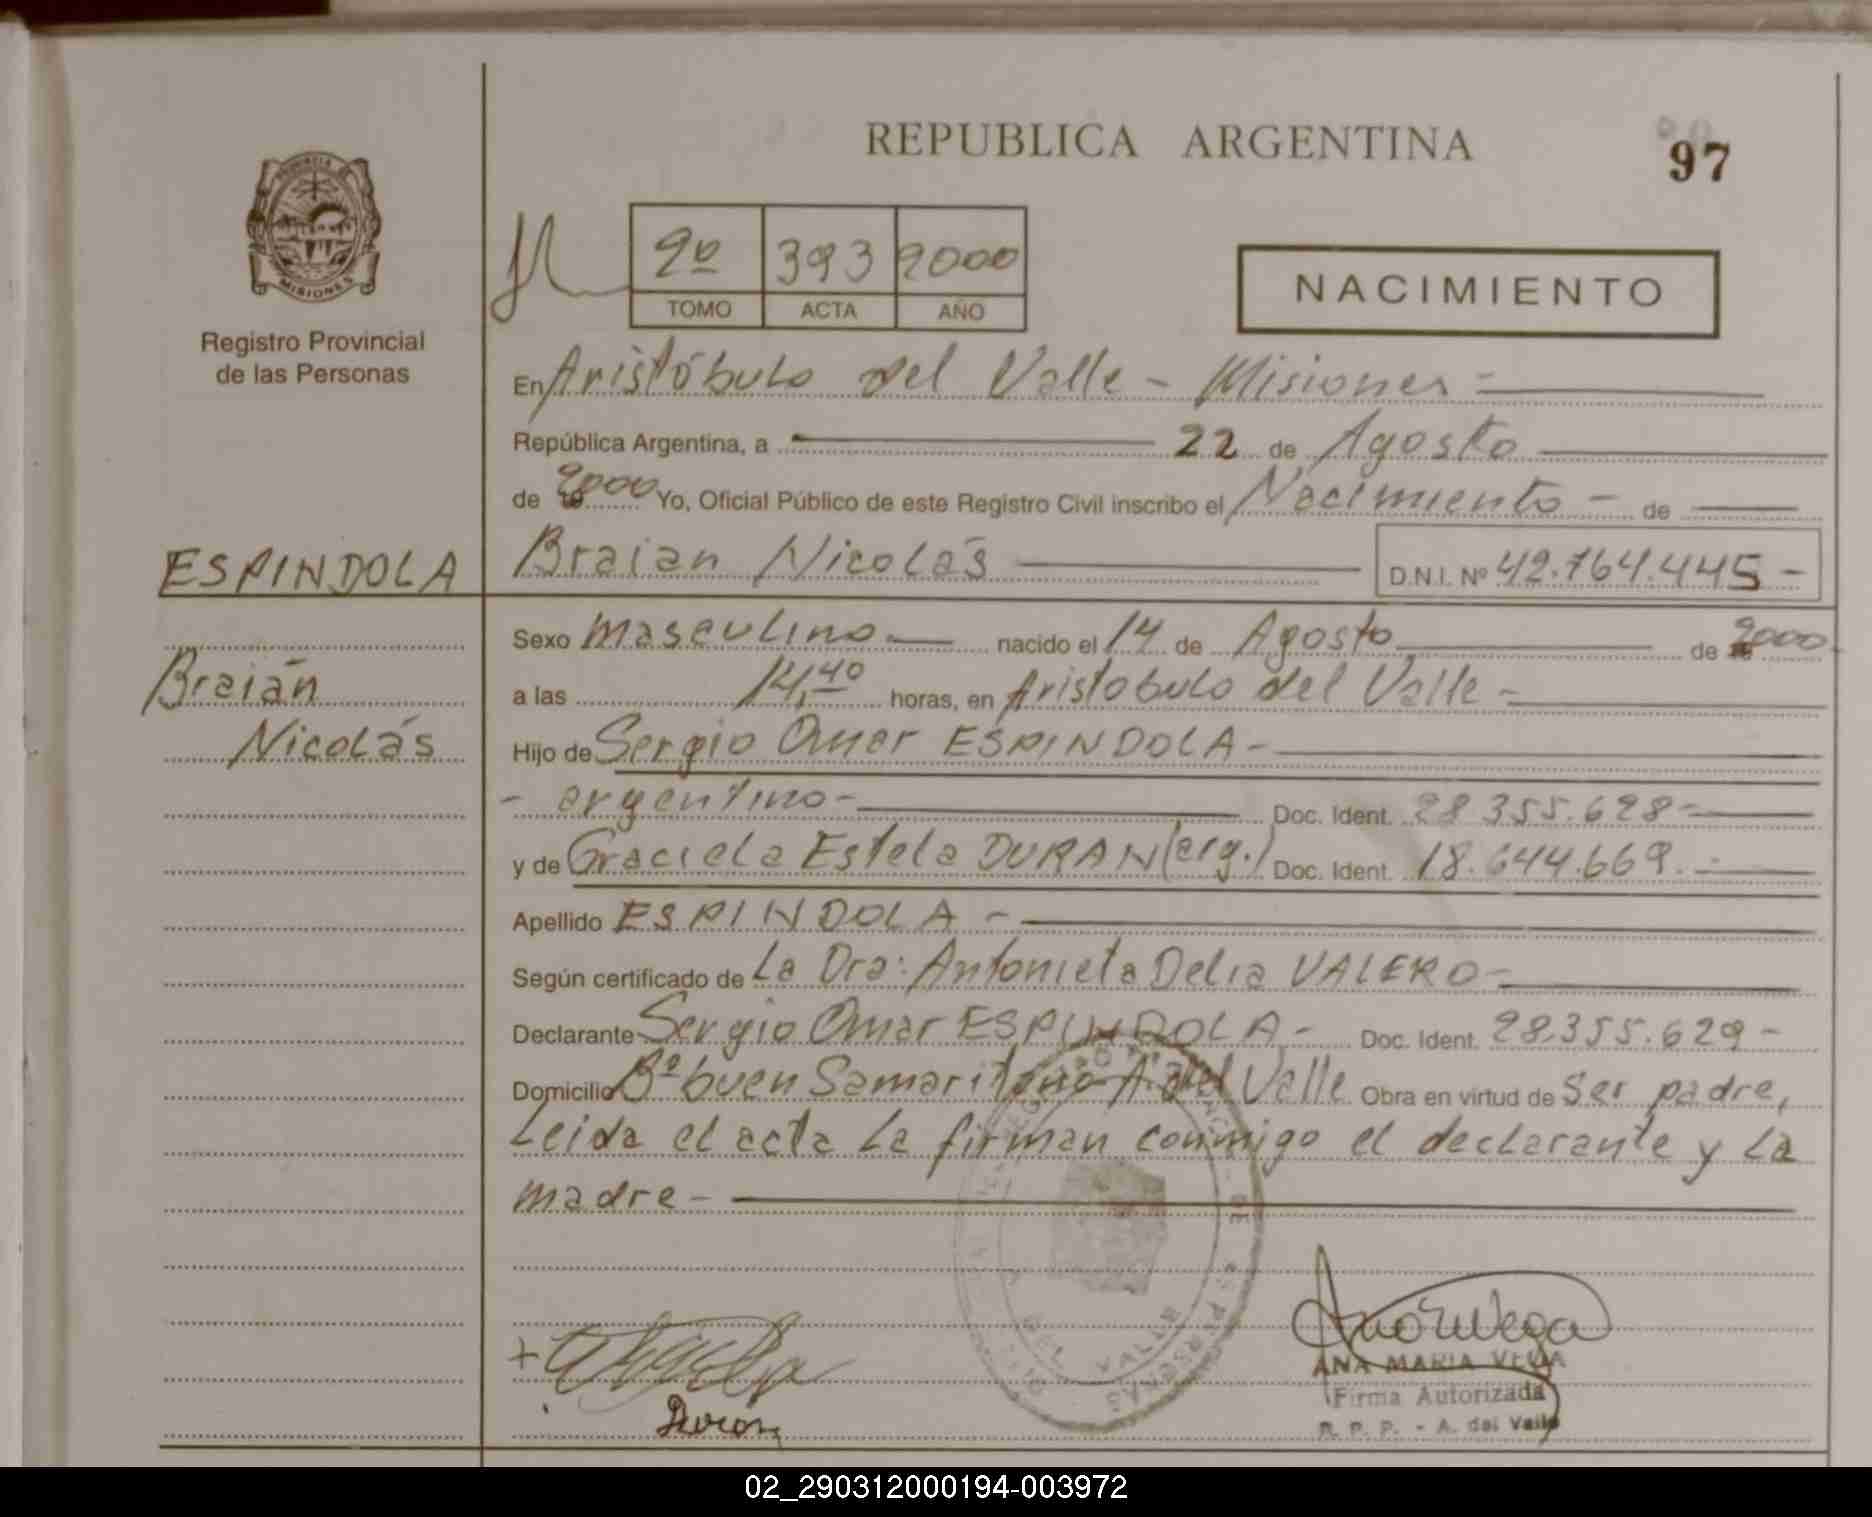 REPUBLICA ARGENTINA
97
PROVINCIA DE
MISIONES
Registro Provincial
de las Personas
2º 393 2000
TOMO ACTA AÑO
NACIMIENTO
En Aristóbulo del Valle - Misiones -
República Argentina, a 22 de Agosto
de 2000 Yo, Oficial Público de este Registro Civil inscribo el Nacimiento - de
ESPINDOLA
Braian Nicolás D.N.I. Nº 42.764.445 -
Sexo masculino nacido el 14 de Agosto de 2000
Braián
a las 14,40 horas, en Aristobulo del Valle -
Nicolás
Hijo de Sergio Omar ESPINDOLA -
- argentino - Doc. Ident. 28.355.628 -
y de Graciela Estela DURAN (arg.) Doc. Ident. 18.644.669. -
Apellido ESPINDOLA -
Según certificado de La Dra: Antonieta Delia VALERO -
Declarante Sergio Omar ESPINDOLA - Doc. Ident. 28.355.629 -
Domicilio Bº buen Samaritano A. del Valle Obra en virtud de Ser padre,
Leida el acta la firman conmigo el declarante y la
madre -
DEL VALLE
ANA MARIA VEGA
Firma Autorizada
R. P. P. - A. del Valle
Duran
02_290312000194-003972